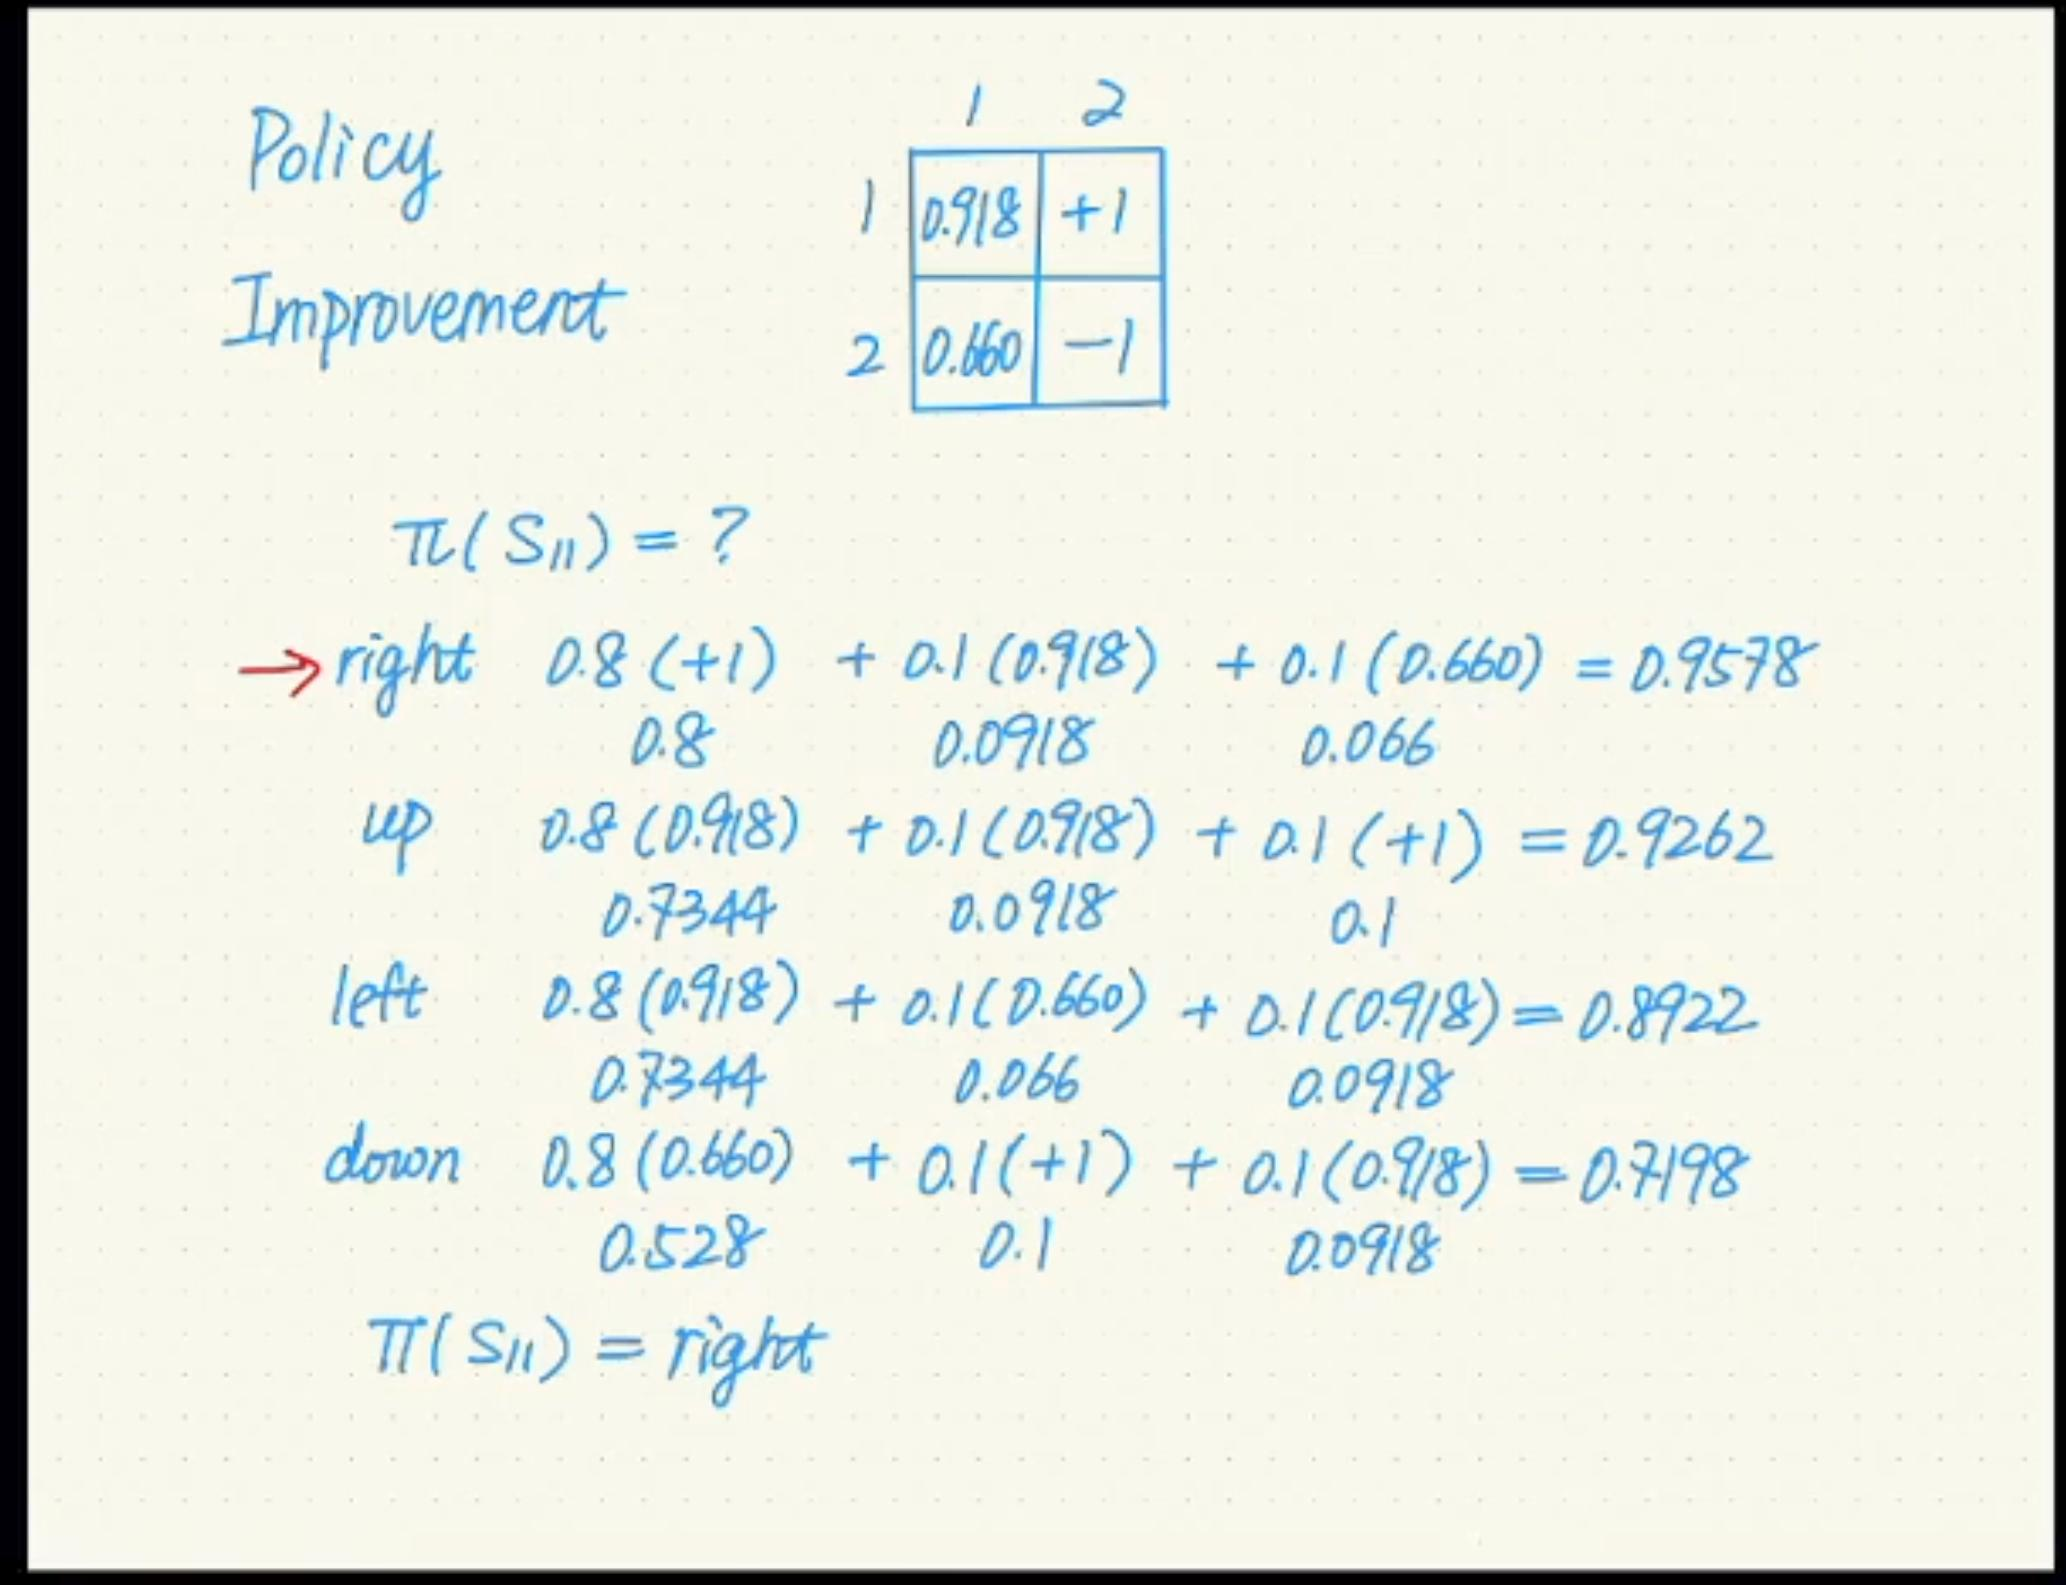 Policy
Improvement
1 2
1 0.918 +1
2 0.660 -1
π(S11) = ?
→ right 0.8 (+1) + 0.1 (0.918) + 0.1 (0.660) = 0.9578
0.8 0.0918 0.066
up 0.8 (0.918) + 0.1 (0.918) + 0.1 (+1) = 0.9262
0.7344 0.0918 0.1
left 0.8 (0.918) + 0.1 (0.660) + 0.1 (0.918) = 0.8922
0.7344 0.066 0.0918
down 0.8 (0.660) + 0.1 (+1) + 0.1 (0.918) = 0.7198
0.528 0.1 0.0918
π(S11) = right